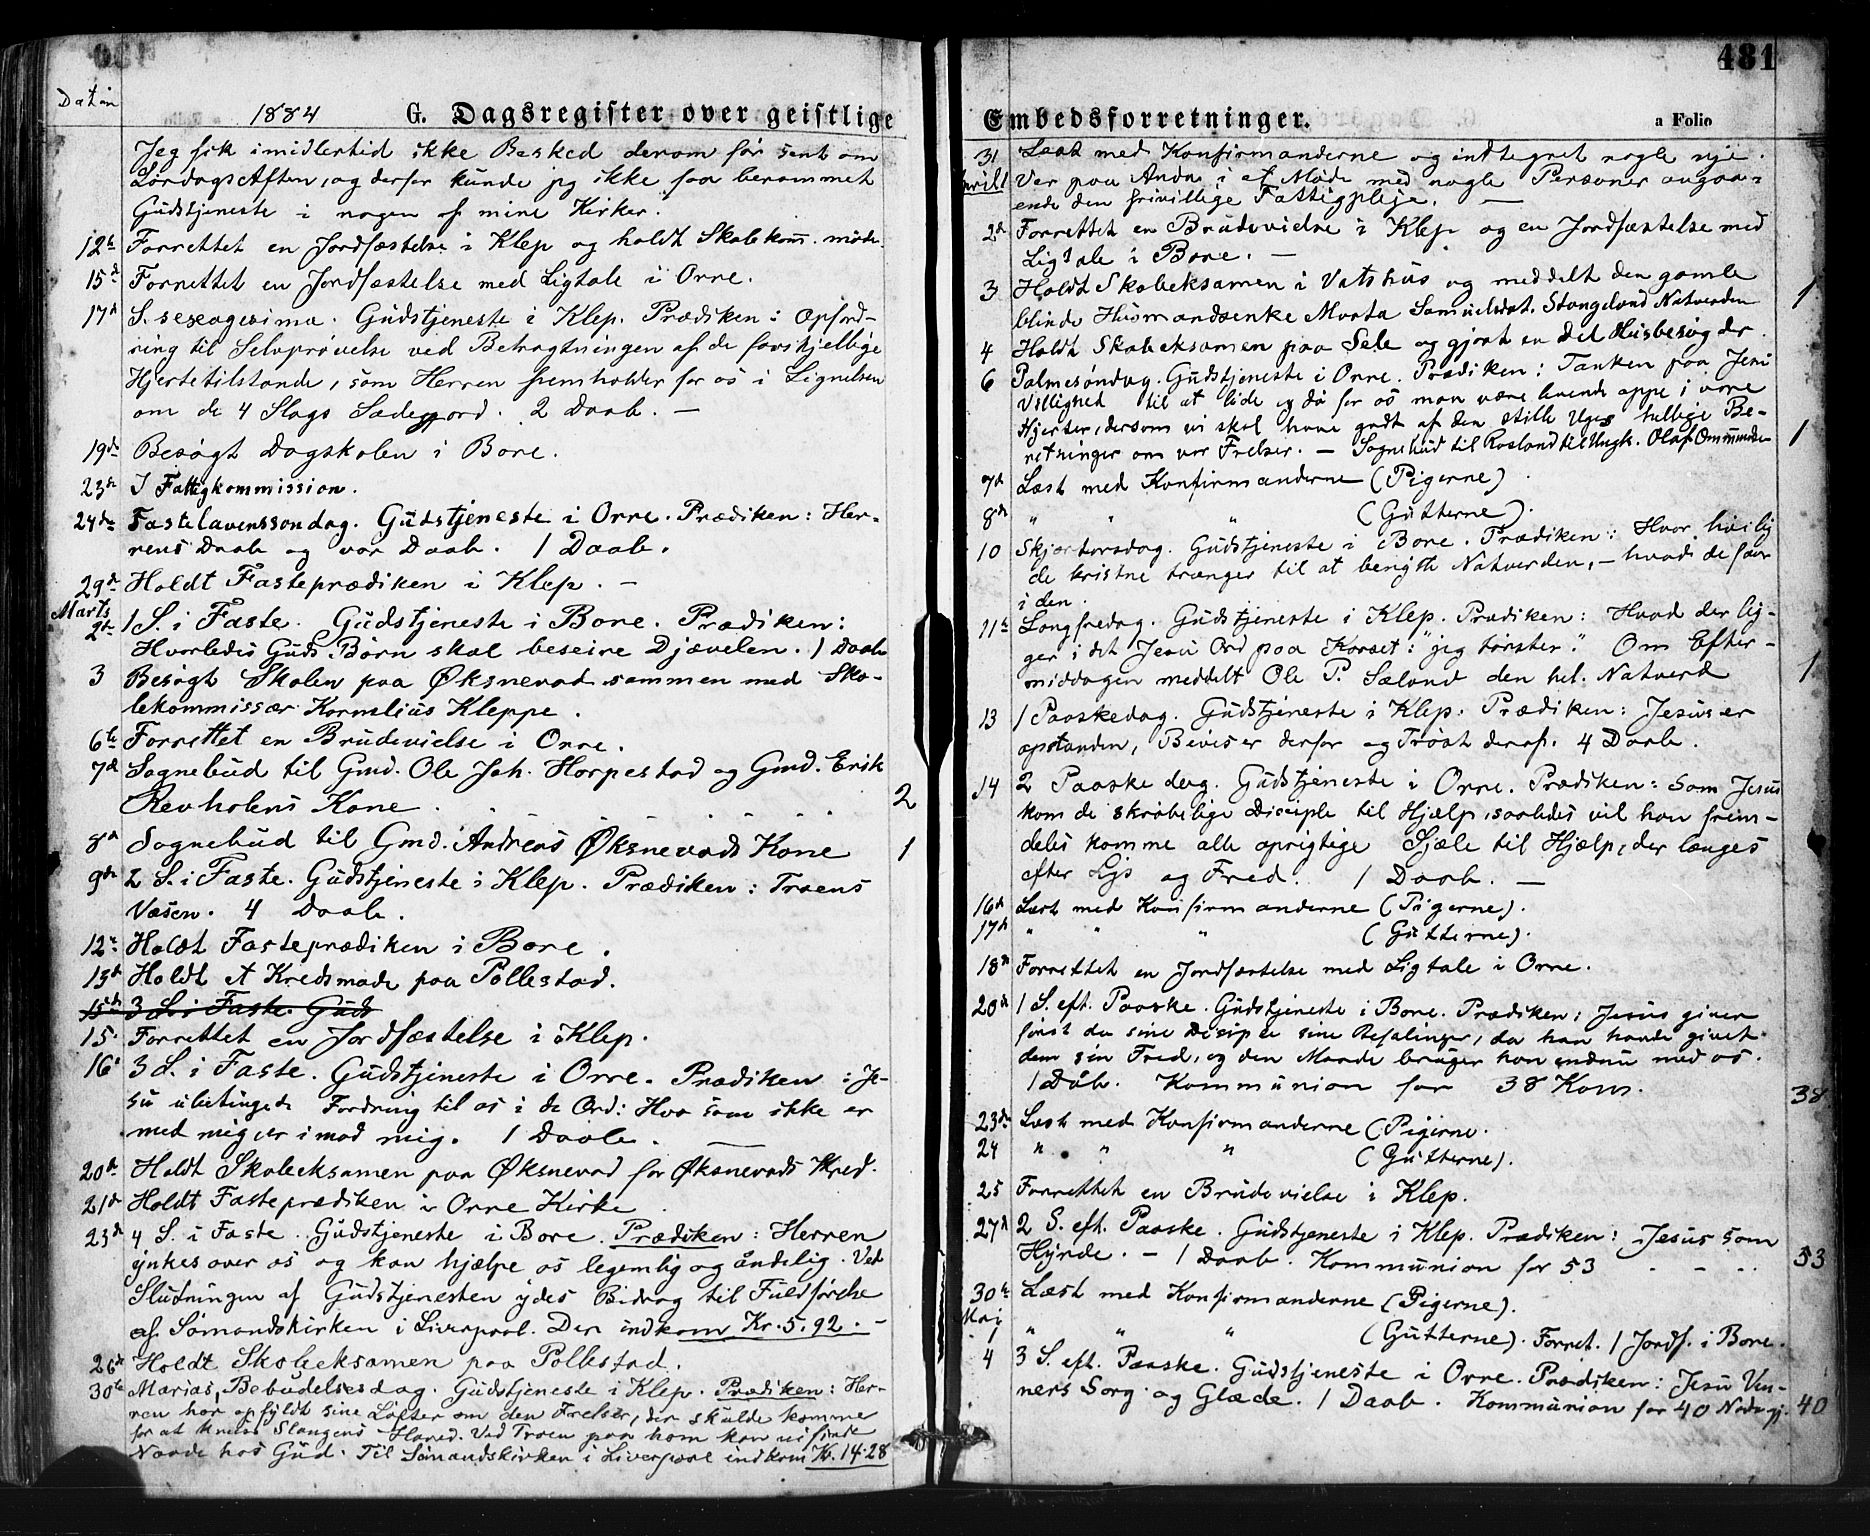 Datum
1884 G. Dagsregister over geistlige
Jeg fik imidlertid ikke Besked derom før sent om
Lørdags Aften, og derfor kunde jeg ikke faa berammet
Gudstjeneste i nogen af mine Kirker.
12te Forrettet en Jordfæstelse i Klep og holdt Skolekom. møde.
15d Forrettet en Jordfæstelse med Ligtale i Orre.
17d S. sexagesima. Gudstjeneste i Klep. Prædiken: Opford-
ring til Selvprøvelse ved Betragtningen af de forskjellige
Hjertetilstande, som Herren fremholder for os i Lignelsen
om de 4 Slags Sædejord. 2 Daab. —
19de Besøgt Dagskolen i Bore.
23de I Fattigkommission.
24de Fastelavenssondag. Gudstjeneste i Orre. Prædiken: Her-
rens Daab og vor Daab. 1 Daab.
29de Holdt Fasteprædiken i Klep. —
Marts
2de 1 S. i Faste. Gudstjeneste i Bore. Prædiken:
Hvorledes Guds Børn skal beseire Djævelen. 1 Daab
3 Besøgt Skolen paa Øksnevad sammen med Sko-
lekommissær Kornelius Kleppe.
6te Forrettet en Brudevielse i Orre.
7de Sognebud til Gmd. Ole Joh. Horpestad og Gmd. Erik
Revholens Kone . . . . . . 2
8d Sognebud til Gmd. Andreas Øksnevads Kone 1
9de 2 S. i Faste. Gudstjeneste i Klep. Prædiken: Troens
Væsen. 4 Daab.
12te Holdt Fasteprædiken i Bore.
13d Holdt et Kredsmøde paa Pollestad.
15de 3 S. i Faste. Guds
15. Forrettet en Jordfæstelse i Klep.
16d 3 S. i Faste. Gudstjeneste i Orre. Prædiken: Je-
su ubetingede Fordring til os i de Ord: Hvo som ikke er
med mig er imod mig. 1 Daab. —
20de Holdt Skoleeksamen paa Øksnevad for Øksnevads Kred.
21de Holdt Fasteprædiken i Orre Kirke
23d 4 S. i Faste. Gudstjeneste i Bore. Prædiken: Herren
ynkes over os og kan hjælpe os legemlig og åndelig. Ved
Slutningen af Gudstjenesten ydes Bidrag til Fuldførelse
af Sømandskirken i Liverpool. Der indkom Kr. 5.92. —
26de Holdt Skoleeksamen paa Pollestad.
30te Marias Bebudelsesdag. Gudstjeneste i Klep. Prædiken: Her-
ren har opfyldt sine Løfter om den Frelser, der skulde komme
for at knuse Slangens Hoved. Ved Troen paa ham kan vi finde
Naade hos Gud. Til Sømandskirken i Liverpool indkom Kr. 14.28
481
Embedsforretninger. a Folio
31 Læst med Konfirmanderne og indtegnet nogle nye.
April 1 Var paa Anda i et Møde med nogle Personer angaa-
ende den frivillige Fattigpleje. —
2d Forrettet en Brudevielse i Klep og en Jordfæstelse med
Ligtale i Bore. —
3 Holdt Skoleeksamen i Vatshus og meddelt den gamle
blinde Husmandsenke Marta Samuelsdat. Stangeland Natverden 1
4 Holdt Skoleeksamen paa Sele og gjort en Del Husbesøg der.
6 Palmesøndag. Gudstjeneste i Orre. Prædiken: Tanken paa Jesu
Villighed til at lide og dø for os maa være levende oppe i vore
Hjerter, dersom vi skal have godt af den stille Uges hellige Be-
retninger om vor Frelser. — Sognebud til Rosland til Ungk. Olaf Ommundsen 1
7d Læst med Konfirmanderne (Pigerne)
8de " " " (Gutterne).
10 Skjærtorsdag. Gudstjeneste i Bore. Prædiken: Hvor hvilig
de kristne trænger til at benytte Natverden, — hvad de faar
i den.
11te Langfredag. Gudstjeneste i Klep. Prædiken: Hvad der lig-
ger i det Jesu Ord paa Korset: "jeg tørster." Om Efter-
middagen meddelt Ole P. Sæland den hel. Natverd 1
13 1 Paaskedag. Gudstjeneste i Klep. Prædiken: Jesus er
opstanden, Beviser derfor og Trøst deraf. 4 Daab.
14 2 Paaskedag. Gudstjeneste i Orre. Prædiken: Som Jesus
kom de skrøbelige Disciple til Hjælp, saaledes vil han frem-
deles komme alle oprigtige Sjæle til Hjælp, der længes
efter Lys og Fred. 1 Daab. —
16de Læst med Konfirmanderne (Pigerne).
17de " " " (Gutterne).
18de Forrettet en Jordfæstelse med Ligtale i Orre.
20de 1 S. eft. Paaske. Gudstjeneste i Bore. Prædiken: Jesus giver
først da sine Disciple sine Befalinger, da han havde givet
dem sin Fred, og den Maade bruger han endnu med os.
1 Dåb. Kommunion for 38 Kom. 38
23de Læst med Konfirmanderne (Pigerne.
24 " " " (Gutterne).
25 Forrettet en Brudevielse i Klep.
27d 2 S. eft. Paaske. Gudstjeneste i Klep. Prædiken: Jesus som
Hyrde. — 1 Daab. Kommunion for 53 - - . . 53
30te Læst med Konfirmanderne (Pigerne).
Maj
1 " " " (Gutterne). Forret. 1 Jordf. i Bore.
4 3 S. eft. Paaske. Gudstjeneste i Orre. Prædiken: Jesu Ven-
ners Sorg og Glæde. 1 Daab. Kommunion for 40 Nadv.gj. 40